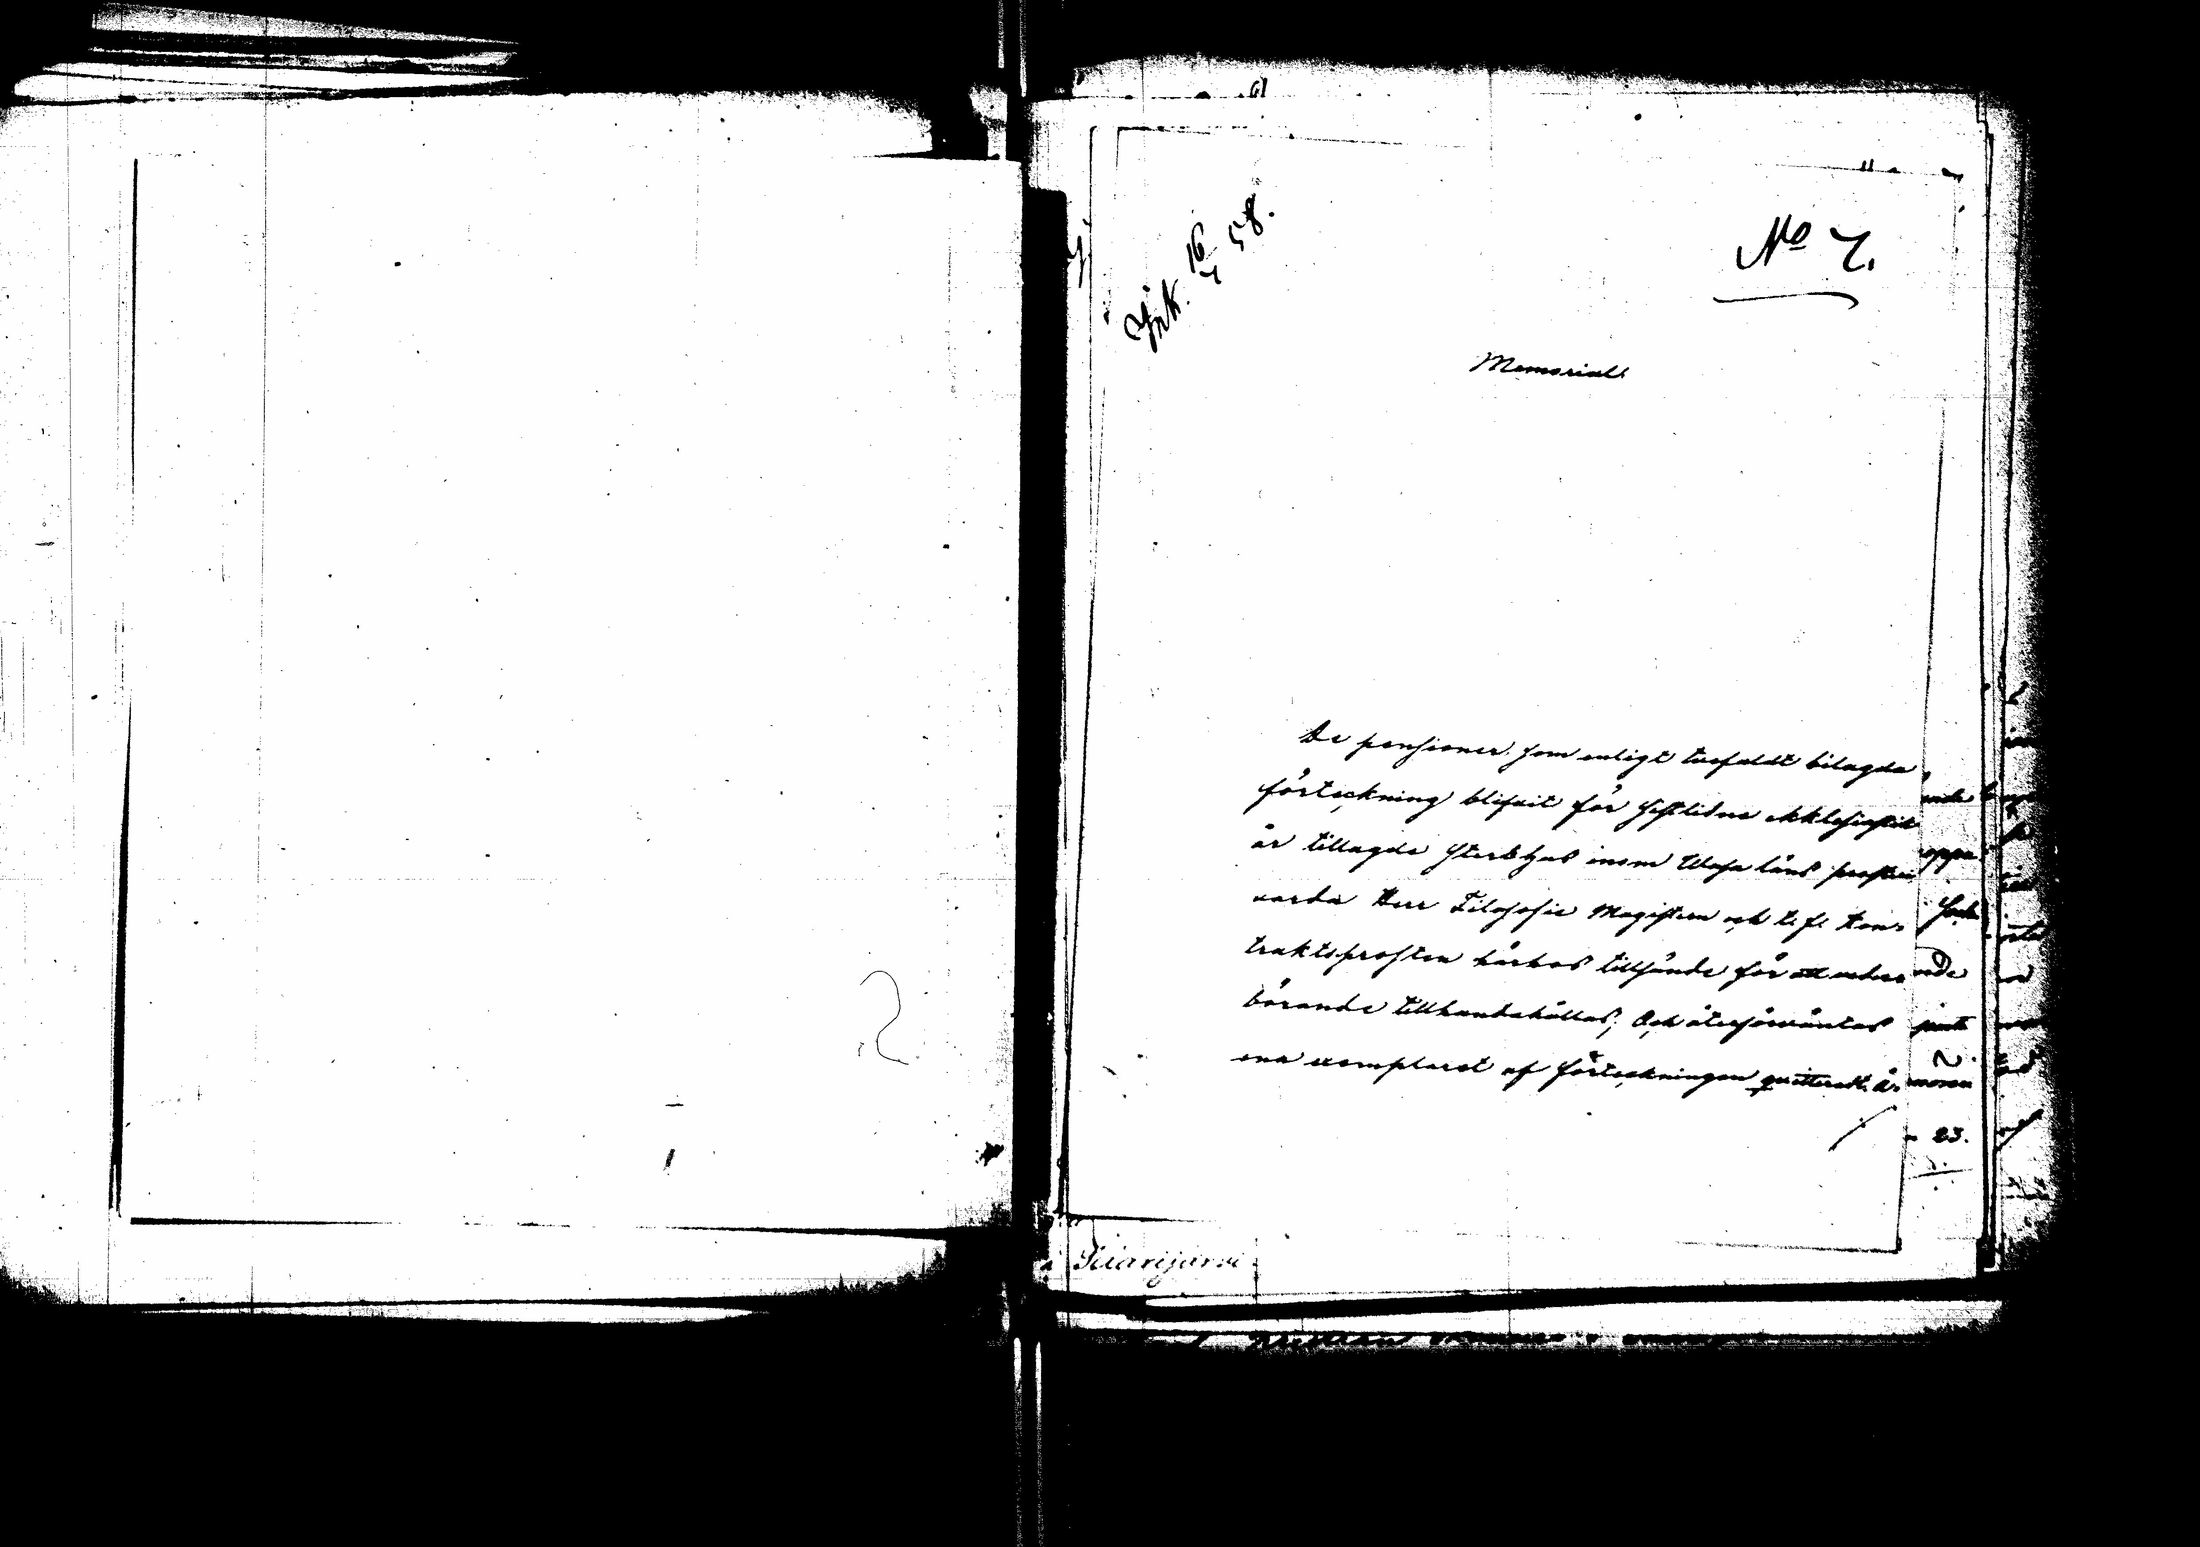 Ink. 16/4 58.
No 7.
Memorial.
De pensioner, som enligt tvefaldt bilagda
förteckning blifvit för sistlidne ekklesiastik
år tillagde sterbhus inom Wasa läns prosteri
varda Herr Filosofie Magistern och t. f. Kon-
traktsprosten härhos tillsände för att veder-
börande tillhandahållas; Och återförväntas
ena exemplaret af förteckningen qvitteradt. Å-
23.